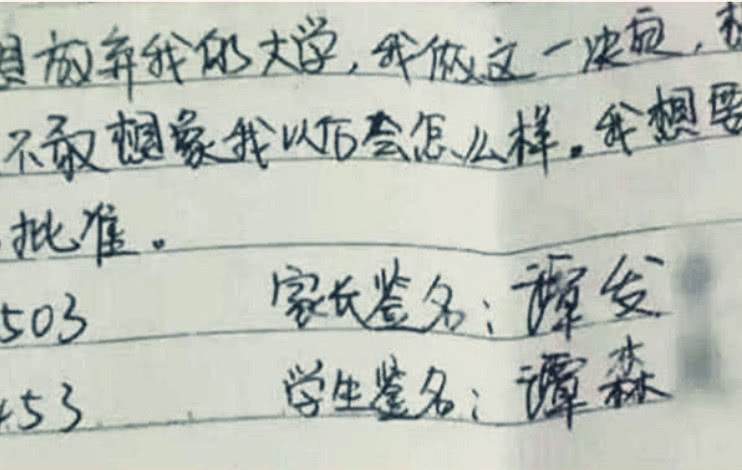 想放弃我的大学，我做这一决定，
不敢想象我以后会怎么样。我想要
批准。
503 家长签名：谭发
453 学生签名：谭森